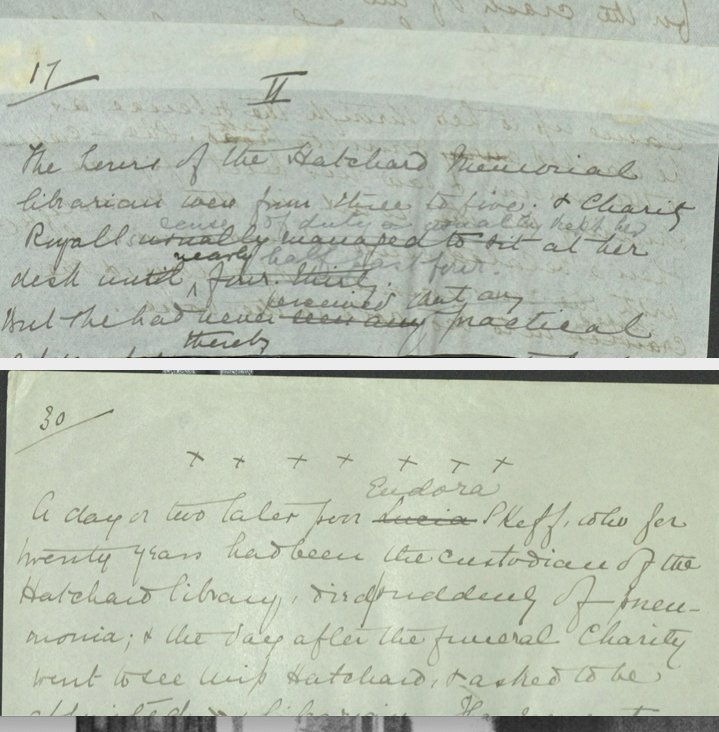 17
II
The hours of the Hatchard Memorial
librarian were from three to five; & Charity
sense of duty usually kept her
Royall usually managed to sit at her
nearly half past four.
desk until four thirty.
perceived that any
But she had never seen any practical
thereby
30
x x x x x x x
Eudora
A day or two later poor Lucia Skeff, who for
twenty years had been the custodian of the
Hatchard library, died suddenly of pneu-
monia; & the day after the funeral Charity
went to see Miss Hatchard, & asked to be